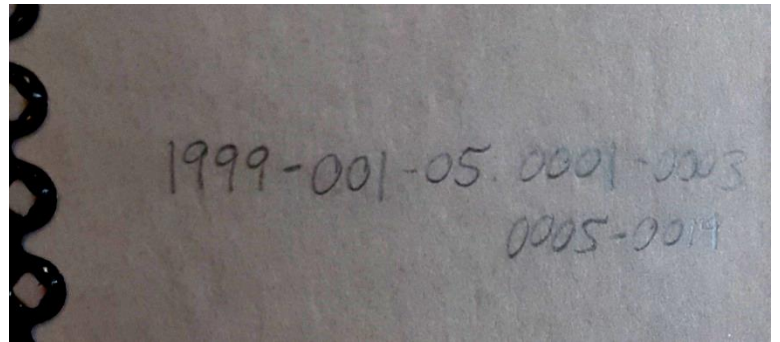 1999-001-05.0001-0003
0005-0019